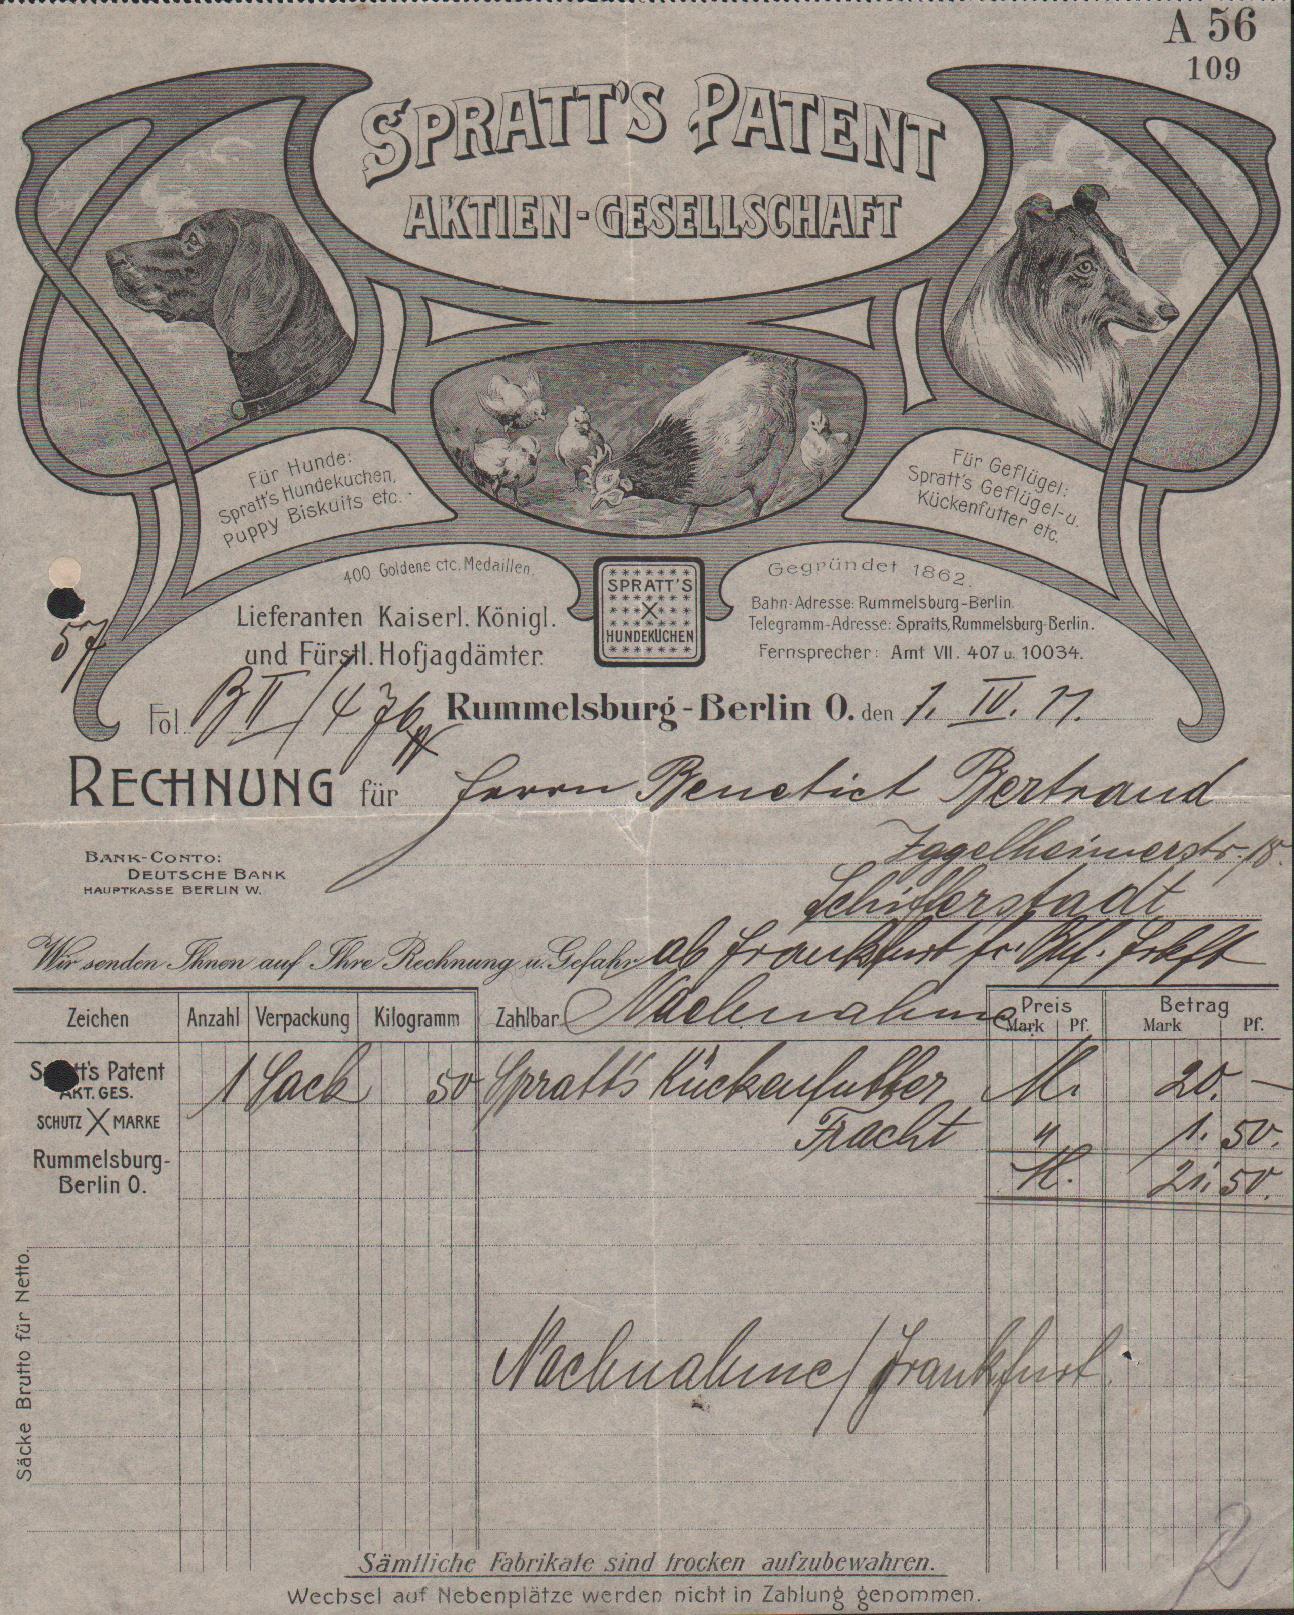 A 56
109
SPRATT'S PATENT
AKTIEN-GESELLSCHAFT
Für Hunde:
Spratt's Hundekuchen,
Puppy Biskuits etc.-
Für Geflügel:
Spratt's Geflügel-u.
Kückenfutter etc.
400 Goldene etc. Medaillen.
Lieferanten Kaiserl. Königl.
und Fürstl. Hofjagdämter.
SPRATT'S
X
HUNDEKUCHEN
Gegründet 1862.
Bahn-Adresse: Rummelsburg-Berlin.
Telegramm-Adresse: Spratts, Rummelsburg-Berlin.
Fernsprecher: Amt VII. 407 u. 10034.
57
Fol. B II / 476
Rummelsburg-Berlin O. den 1. IV. 11.
RECHNUNG für Herrn Benedict Bertrand
Iggelheimerstr. 18.
Schifferstadt
BANK-CONTO:
DEUTSCHE BANK
HAUPTKASSE BERLIN W.
Wir senden Ihnen auf Ihre Rechnung u. Gefahr ab Frankfurt fr.
Zeichen Anzahl Verpackung Kilogramm Zahlbar Nachnahme Preis Mark Pf. Betrag Mark Pf.
Spratt's Patent
AKT. GES.
SCHUTZ X MARKE
Rummelsburg-
Berlin O.
1 Sack 50 Spratt's Kückenfutter M. 20. —
Fracht " 1. 50.
M. 21. 50.
Nachnahme / Frankfurt.
Säcke Brutto für Netto.
Sämtliche Fabrikate sind trocken aufzubewahren.
Wechsel auf Nebenplätze werden nicht in Zahlung genommen.